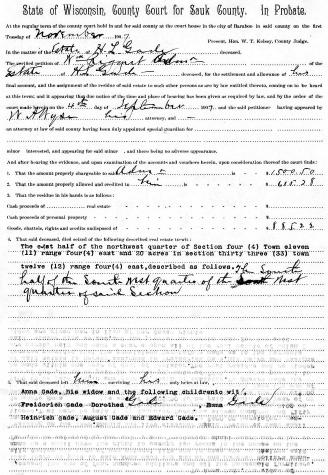 State of Wisconsin, County Court for Sauk County. In Probate.
At the regular term of the county court held in and for said county at the court house in the city of Baraboo in said county on the first
Tuesday of November 1917. Present, Hon. W. T. Kelsey, County Judge.
In the matter of the estate of H. L. Gade deceased.
The verified petition of Wm
estate of H. L. Gade deceased, for the settlement and allowance of his
final account, and the assignment of the residue of said estate to such other persons as are by law entitled thereto, coming on to be heard
at this term; and it appearing that due notice of the time and place of hearing has been given as required by law, and by the order of the
court made herein on the 4th day of September 1917. and the said petitioner having appeared
by W. A. Wyse his attorney, and
an attorney at law of said county having been duly appointed special guardian for
minor interested, and appearing for said minor, and there being no adverse appearance.
And after hearing the evidence, and upon examination of the accounts and vouchers herein, upon consideration thereof the court finds:
1. That the amount properly chargeable to said Admr is $1500.50
2. That the amount properly allowed and credited is him $615.28
3. That the residue in his hands is as follows:
Cash proceeds of real estate $
Cash proceeds of personal property $
Goods, chattels, rights and credits undisposed of $885.22
4. That said deceased, died seized of the following described real estate towit:
The east half of the northwest quarter of Section four (4) Town eleven
(11) range four(4) east and 20 acres in section thirty three (33) town
twelve (12) range four (4) east, described as follows. The South
half of the South West quarter of the South West
quarter of said Section
5. That said deceased left him surviving his only heirs at law,
Anna Gade, his widow and the following children to wit
Freiderich Gade Dorothea Gade, Emma Gade
Heinrich Gade, August Gade and Edward Gade.